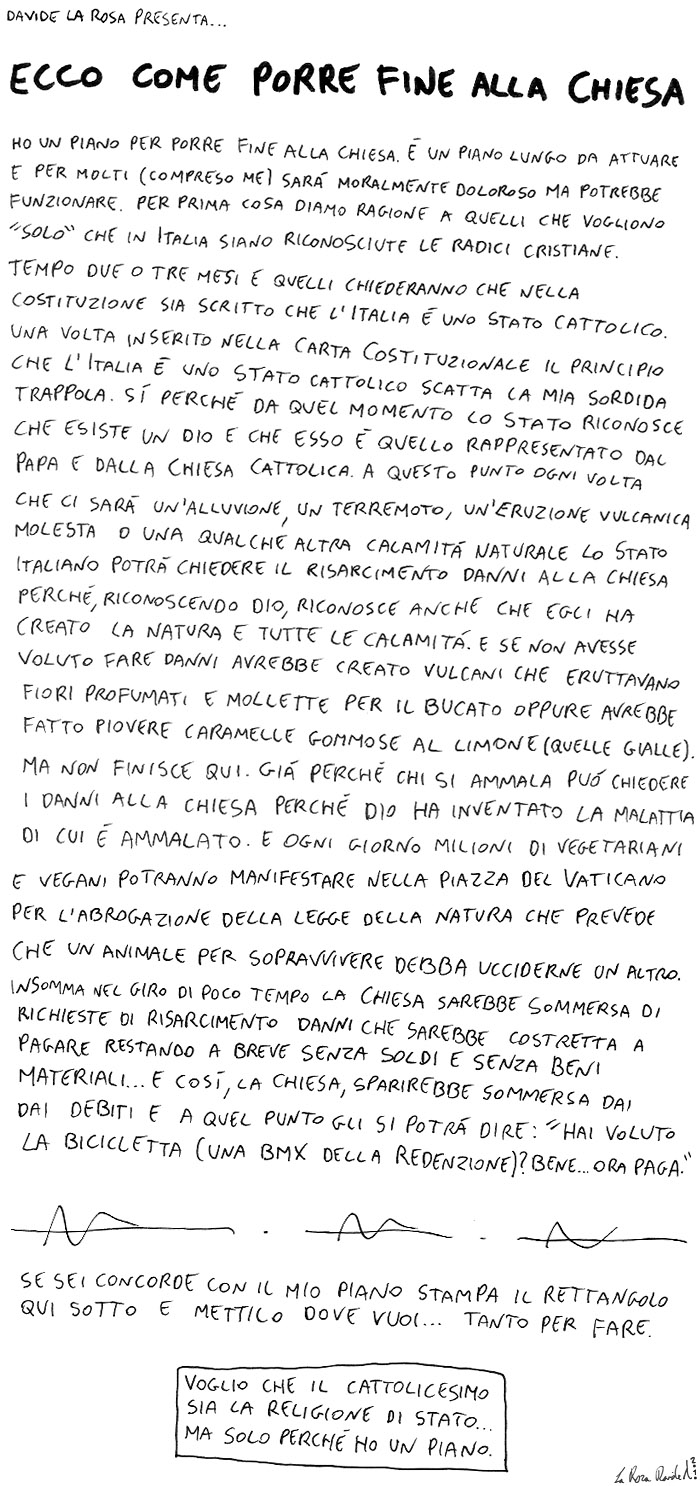 DAVIDE LA ROSA PRESENTA...
ECCO COME PORRE FINE ALLA CHIESA
HO UN PIANO PER PORRE FINE ALLA CHIESA. É UN PIANO LUNGO DA ATTUARE
E PER MOLTI (COMPRESO ME) SARÁ MORALMENTE DOLOROSO MA POTREBBE
FUNZIONARE. PER PRIMA COSA DIAMO RAGIONE A QUELLI CHE VOGLIONO
"SOLO" CHE IN ITALIA SIANO RICONOSCIUTE LE RADICI CRISTIANE.
TEMPO DUE O TRE MESI E QUELLI CHIEDERANNO CHE NELLA
COSTITUZIONE SIA SCRITTO CHE L'ITALIA É UNO STATO CATTOLICO.
UNA VOLTA INSERITO NELLA CARTA COSTITUZIONALE IL PRINCIPIO
CHE L'ITALIA É UNO STATO CATTOLICO SCATTA LA MIA SORDIDA
TRAPPOLA. SÍ PERCHÉ DA QUEL MOMENTO LO STATO RICONOSCE
CHE ESISTE UN DIO E CHE ESSO É QUELLO RAPPRESENTATO DAL
PAPA E DALLA CHIESA CATTOLICA. A QUESTO PUNTO OGNI VOLTA
CHE CI SARÁ UN'ALLUVIONE, UN TERREMOTO, UN'ERUZIONE VULCANICA
MOLESTA O UNA QUALCHE ALTRA CALAMITÁ NATURALE LO STATO
ITALIANO POTRÁ CHIEDERE IL RISARCIMENTO DANNI ALLA CHIESA
PERCHÉ, RICONOSCENDO DIO, RICONOSCE ANCHE CHE EGLI HA
CREATO LA NATURA E TUTTE LE CALAMITÁ. E SE NON AVESSE
VOLUTO FARE DANNI AVREBBE CREATO VULCANI CHE ERUTTAVANO
FIORI PROFUMATI E MOLLETTE PER IL BUCATO OPPURE AVREBBE
FATTO PIOVERE CARAMELLE GOMMOSE AL LIMONE (QUELLE GIALLE).
MA NON FINISCE QUI. GIÁ PERCHÉ CHI SI AMMALA PUÓ CHIEDERE
I DANNI ALLA CHIESA PERCHÉ DIO HA INVENTATO LA MALATTIA
DI CUI É AMMALATO. E OGNI GIORNO MILIONI DI VEGETARIANI
E VEGANI POTRANNO MANIFESTARE NELLA PIAZZA DEL VATICANO
PER L'ABROGAZIONE DELLA LEGGE DELLA NATURA CHE PREVEDE
CHE UN ANIMALE PER SOPRAVVIVERE DEBBA UCCIDERNE UN ALTRO.
INSOMMA NEL GIRO DI POCO TEMPO LA CHIESA SAREBBE SOMMERSA DI
RICHIESTE DI RISARCIMENTO DANNI CHE SAREBBE COSTRETTA A
PAGARE RESTANDO A BREVE SENZA SOLDI E SENZA BENI
MATERIALI... E COSÍ, LA CHIESA, SPARIREBBE SOMMERSA DAI
DAI DEBITI E A QUEL PUNTO GLI SI POTRÁ DIRE: "HAI VOLUTO
LA BICICLETTA (UNA BMX DELLA REDENZIONE)? BENE... ORA PAGA."
SE SEI CONCORDE CON IL MIO PIANO STAMPA IL RETTANGOLO
QUI SOTTO E METTILO DOVE VUOI... TANTO PER FARE.
VOGLIO CHE IL CATTOLICESIMO
SIA LA RELIGIONE DI STATO...
MA SOLO PERCHÉ HO UN PIANO.
La Rosa Davide